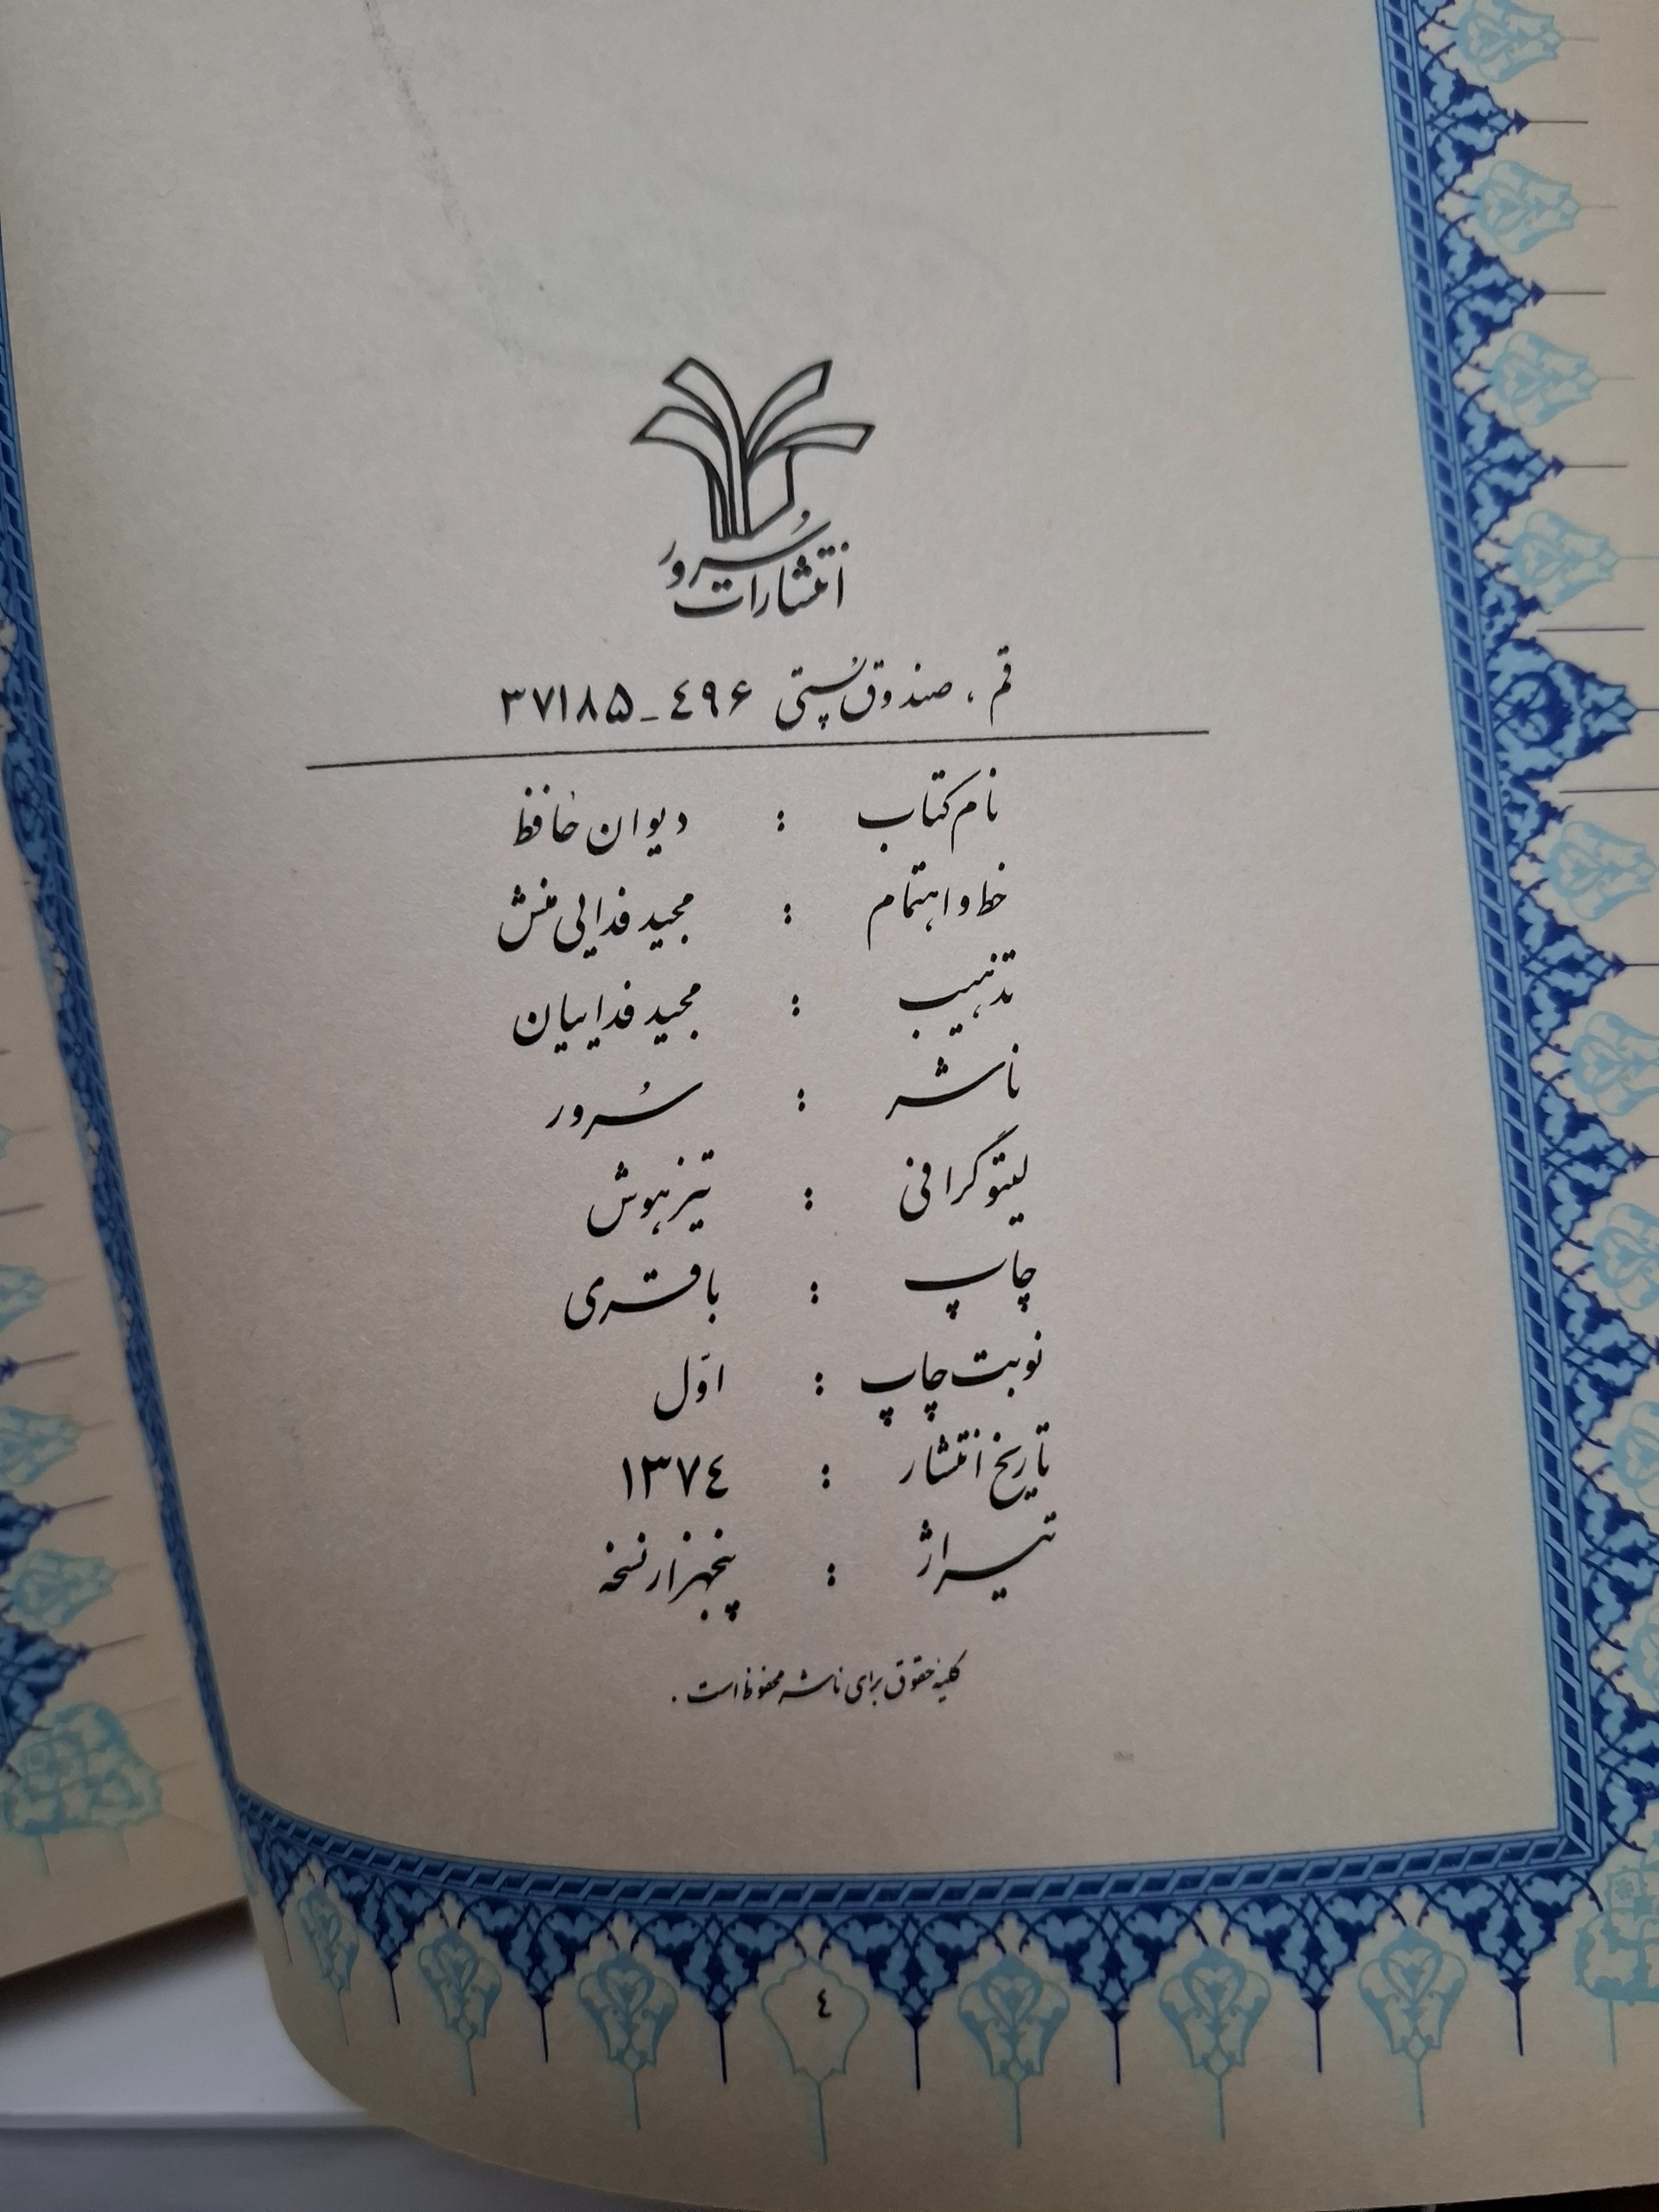 انتشارات سُرور
قم ، صندوق پُستی ۴۹۶_۳۷۱۸۵
نام کتاب : دیوان حافظ
خط و اهتمام : مجید فدائی منش
تذهیب : مجید فداییان
ناشر : سُرور
لیتوگرافی : تیزهوش
چاپ : باقری
نوبت چاپ : اوّل
تاریخ انتشار : ۱۳۷۴
تیراژ : پنجهزار نسخه
کلیهٔ حقوق برای ناشر محفوظ است .
۴